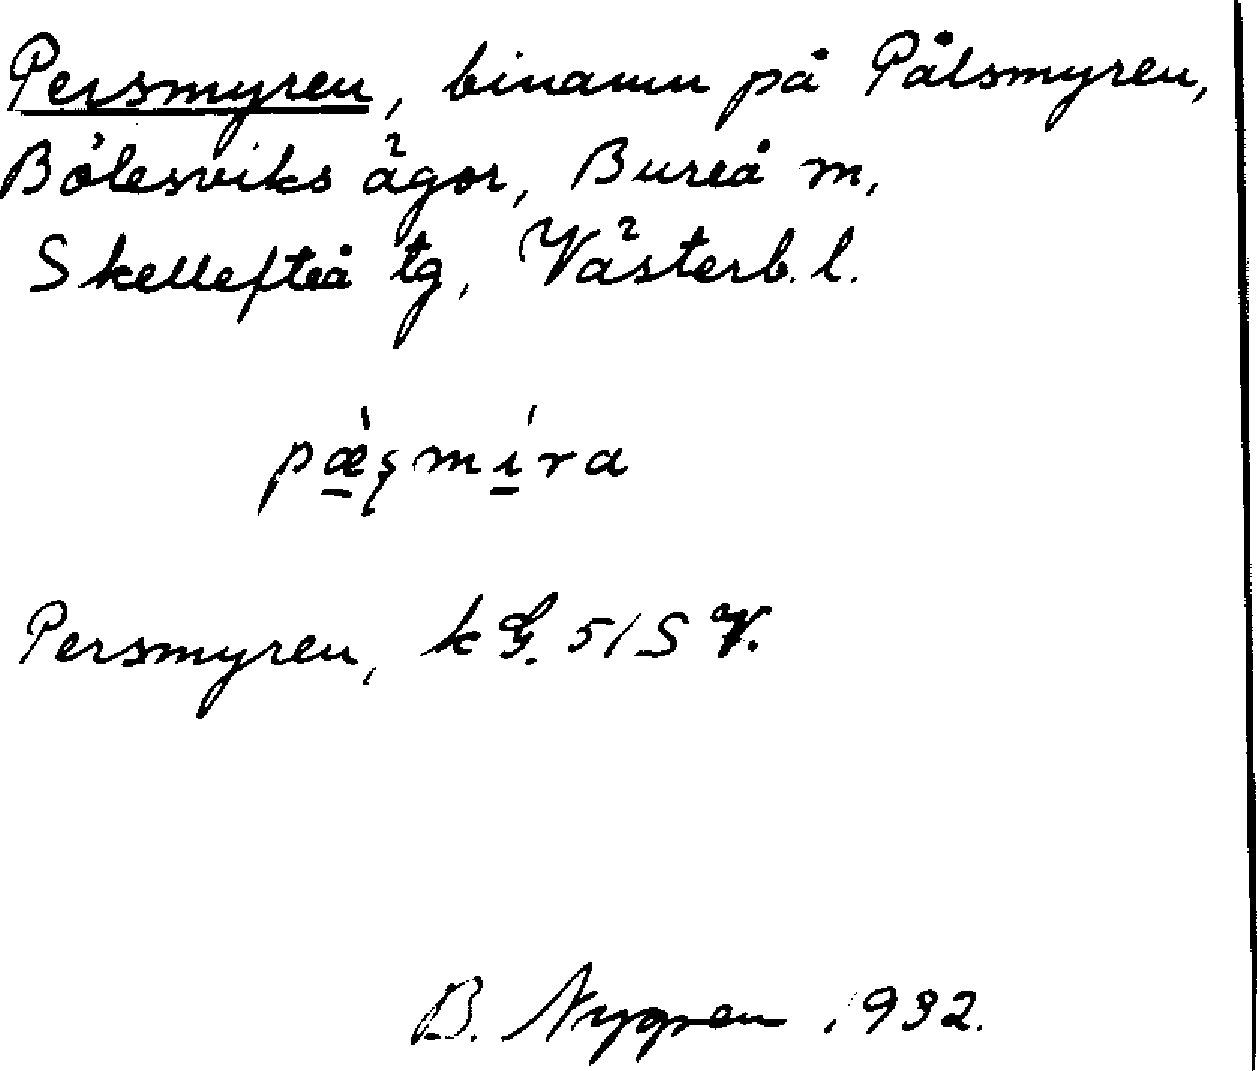 Persmyren, binamn på Pålsmyren,
Bölesviks ägor, Bureå m,
Skellefteå tg, Västerb. l.
pæ̱̀ʂmí̱ra
Persmyren, k G. 51 S V.
B. Nygren 1932.